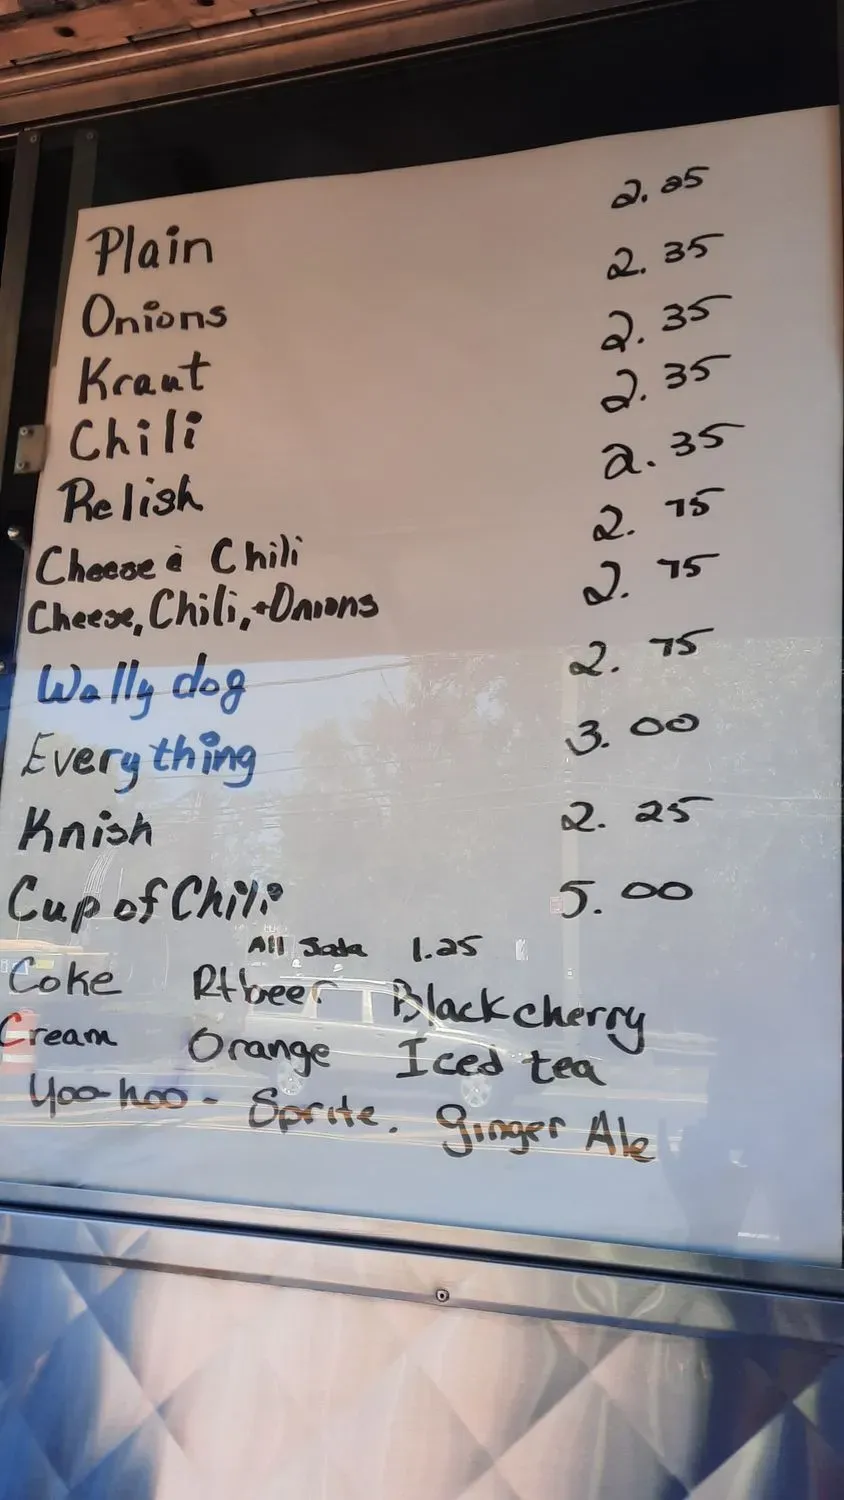 Plain 2.25
Onions 2.35
Kraut 2.35
Chili 2.35
Relish 2.35
Cheese & Chili 2.75
Cheese, Chili, + Onions 2.75
Wally dog 2.75
Everything 3.00
Knish 2.25
Cup of Chili 5.00
All Soda 1.25
Coke Rtbeer Black cherry
Cream Orange Iced tea
Yoo-hoo - Sprite. Ginger Ale